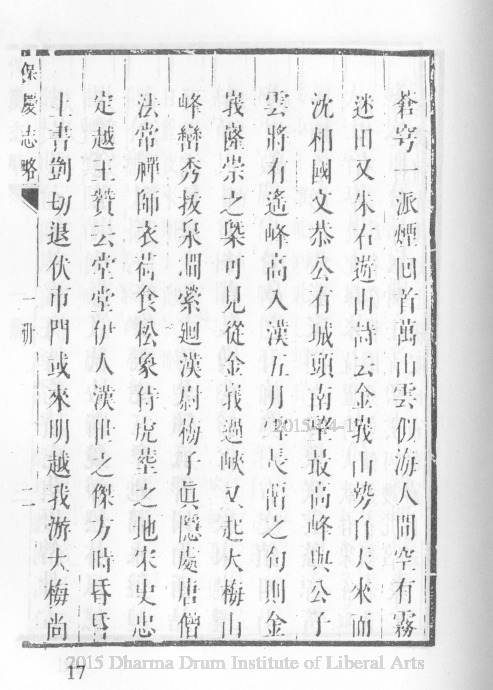 蒼穹一派煙回首萬山雲似海人間空有霧
迷田又朱右遊山詩云金峩山勢自天來而
沈相國文恭公有城頭南望最高峰與公子
雲將有遙峰高入漢五月長留之句則金
峩窿崇之槩可見從金峩過峽又起大梅山
峰巒秀拔泉澗縈迴漢尉梅子眞隱處唐僧
法常禪師衣荷食松象侍虎塟之地宋史忠
定越王贊云堂堂伊人漢世之傑方時昏昏
上書剴切退伏市門或來明越我游大梅尚
保慶志略 一冊 二
2015 Dharma Drum Institute of Liberal Arts
17